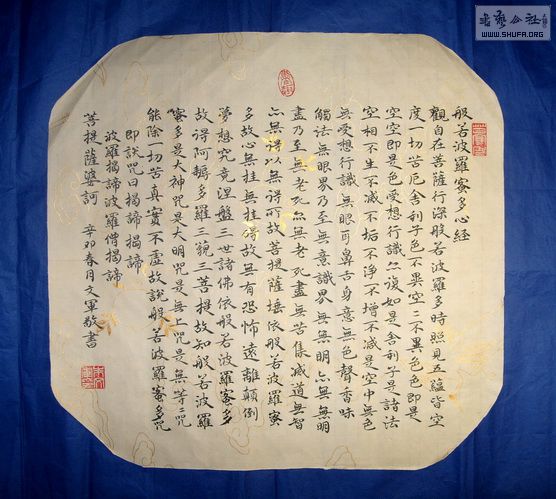 般若波羅蜜多心經
觀自在菩薩行深般若波羅多時照見五蘊皆空
度一切苦厄舍利子色不異空二不異色色即是
空空即是色受想行識亦復如是舍利子是諸法
空相不生不滅不垢不淨不增不減是空中無色
無受想行識無眼耳鼻舌身意無色聲香味
觸法無眼界乃至無意識界無無明亦無無明
盡乃至無老死亦無老死盡無苦集滅道無智
亦無得以無得所故菩提薩埵依般若波羅蜜
多故心無挂無挂碍故無有恐怖遠離顛倒
夢想究竟涅盤三世諸佛依般若波羅蜜多
故得阿耨多羅三藐三菩提故知般若波羅
蜜多是大神咒是大明咒是無上咒是無等二咒
能除一切苦真實不虛故說般若波羅蜜多咒
即說咒曰揭諦揭諦
波羅揭諦波羅僧揭諦
菩提薩婆訶 辛卯春月文軍敬書
WWW.SHUFA.ORG